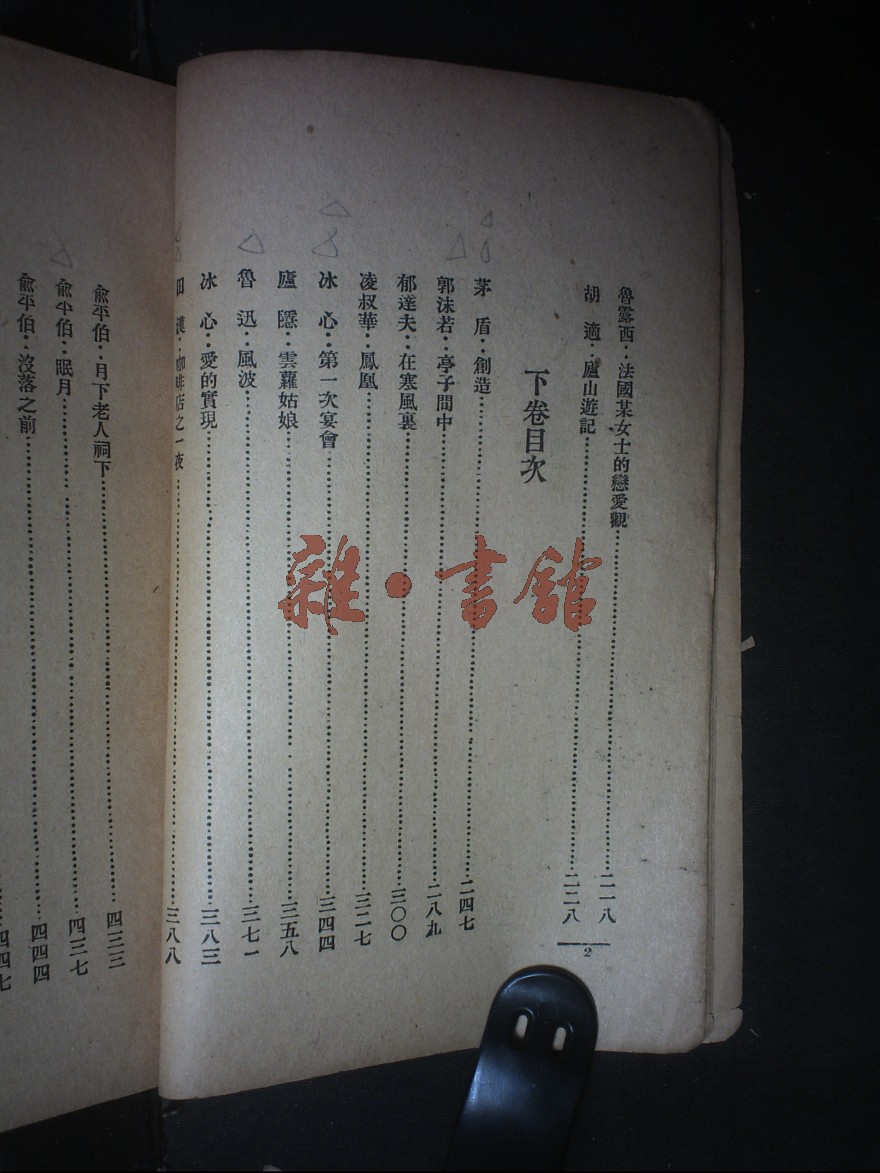 魯露西‥法國某女士的戀愛觀……二一八
胡適‥廬山遊記……二二八
2
下卷目次
茅盾‥創造……二四七
郭沫若‥亭子間中……二八九
郁達夫‥在寒風裏……三〇〇
凌叔華‥鳳凰……三二七
冰心‥第一次宴會……三四四
廬隱‥雲蘿姑娘……三五八
魯迅‥風波……三七一
冰心‥愛的實現……三八三
田漢‥咖啡店之一夜……三八八
俞平伯‥月下老人祠下……四三三
俞平伯‥眠月……四三七
俞平伯‥沒落之前……四四四
四四七
雜·書館